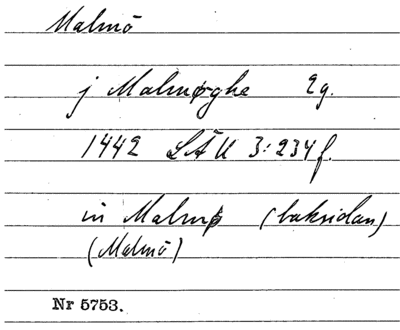 Malmö
j Malmøghe 2g.
1442 SÄU 3:234f.
in Malmø (baksidan)
(Malmö)
Nr 5753.